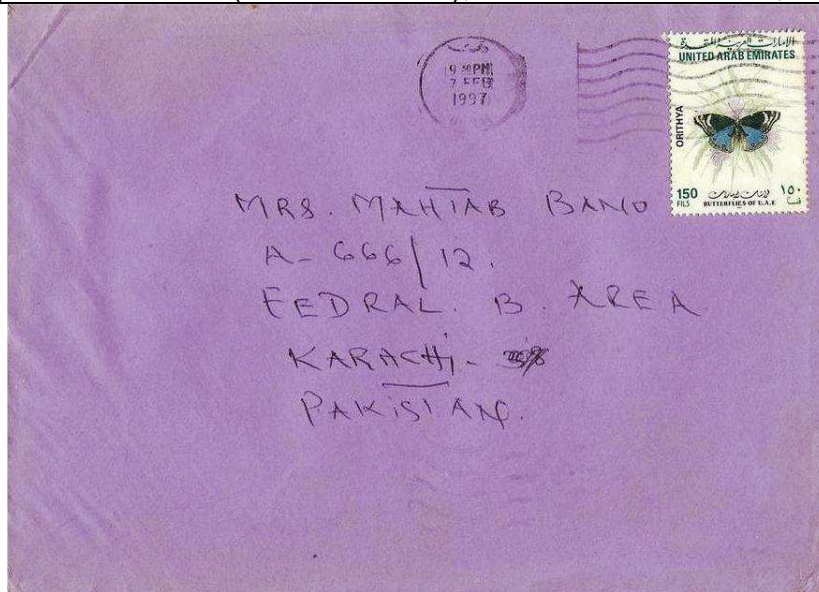 9 PM
7 FEB
1997
الإمارات العربية المتحدة
UNITED ARAB EMIRATES
ORITHYA
150
FILS
١٥٠
BUTTERFLIES OF U.A.E
MRS. MAHTAB BANO
A-666/12.
FEDRAL. B. AREA
KARACHi-
PAKiSTAN.